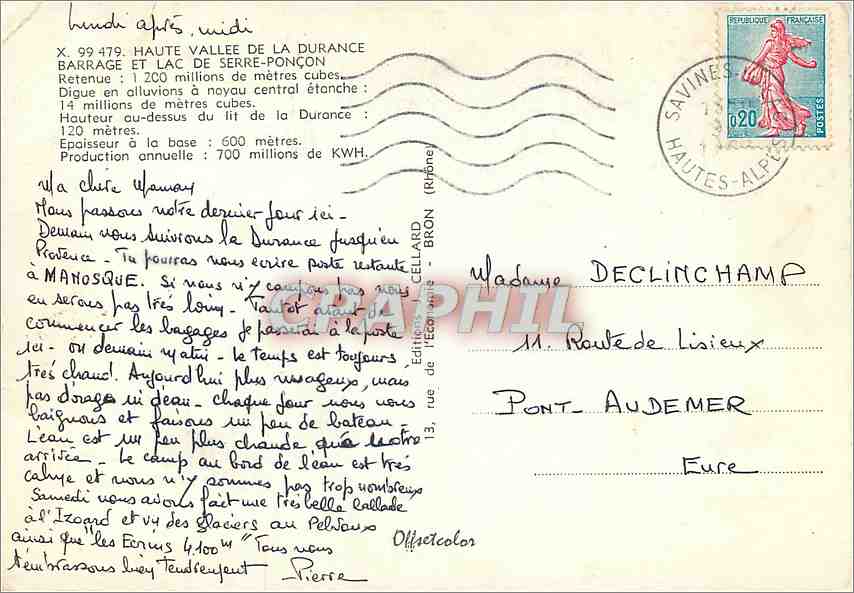 Lundi après-midi
X. 99 479. HAUTE VALLEE DE LA DURANCE
BARRAGE ET LAC DE SERRE-PONÇON
Retenue : 1 200 millions de mètres cubes.
Digue en alluvions à noyau central étanche :
14 millions de mètres cubes.
Hauteur au-dessus du lit de la Durance :
120 mètres.
Epaisseur à la base : 600 mètres.
Production annuelle : 700 millions de KWH.
Ma chère Maman
Nous passons notre dernier jour ici -
Demain nous suivrons la Durance jusqu'en
Provence - Tu pourras nous écrire poste restante
à MANOSQUE. Si nous n'y campons pas nous
en serons pas très loin - Tantôt avant de
commencer les bagages je passerai à la poste
ici - ou demain matin - le temps est toujours
très chaud. Aujourd'hui plus nuageux, mais
pas d'orage ni d'eau - chaque jour nous nous
baignons et faisons un peu de bateau -
L'eau est un peu plus chaude qu'à notre
arrivée - Le camp au bord de l'eau est très
calme et nous n'y sommes pas trop nombreux
Samedi nous avons fait une très belle ballade
à l'Izoard et vu des glaciers au Pelvoux
ainsi que "les Ecrins 4.100m" Tous nous
t'embrassons bien tendrement Pierre
Editions J. CELLARD
13, rue de l'Economie - BRON (Rhône)
Offsetcolor
CPAPHIL
REPUBLIQUE FRANÇAISE
0,20
POSTES
SAVINES-
HAUTES-ALPES
Madame DECLINCHAMP
11. Route de Lisieux
PONT-AUDEMER
Eure